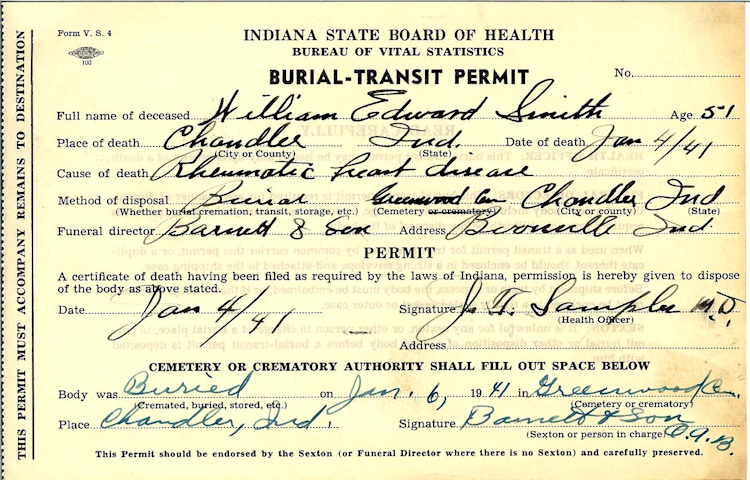 Form V. S. 4
100
INDIANA STATE BOARD OF HEALTH
BUREAU OF VITAL STATISTICS
BURIAL-TRANSIT PERMIT
No.
Full name of deceased William Edward Smith Age 51
Place of death Chandler Ind. Date of death Jan 4/41
(City or County) (State)
Cause of death Rheumatic heart disease
Method of disposal Burial Greenwood Cem Chandler Ind
(Whether burial cremation, transit, storage, etc.) (Cemetery or crematory) (City or county) (State)
Funeral director Barnett & Son Address Boonville Ind.
PERMIT
A certificate of death having been filed as required by the laws of Indiana, permission is hereby given to dispose
of the body as above stated.
Date Jan 4/41 Signature J. T. Samples M.D.
(Health Officer)
Address
CEMETERY OR CREMATORY AUTHORITY SHALL FILL OUT SPACE BELOW
Body was Buried on Jan. 6, 1941 in Greenwood Cem.
(Cremated, buried, stored, etc.) (Cemetery or crematory)
Place Chandler, Ind. Signature Barnett & Son
(Sexton or person in charge) O.A.B.
This Permit should be endorsed by the Sexton (or Funeral Director where there is no Sexton) and carefully preserved.
THIS PERMIT MUST ACCOMPANY REMAINS TO DESTINATION